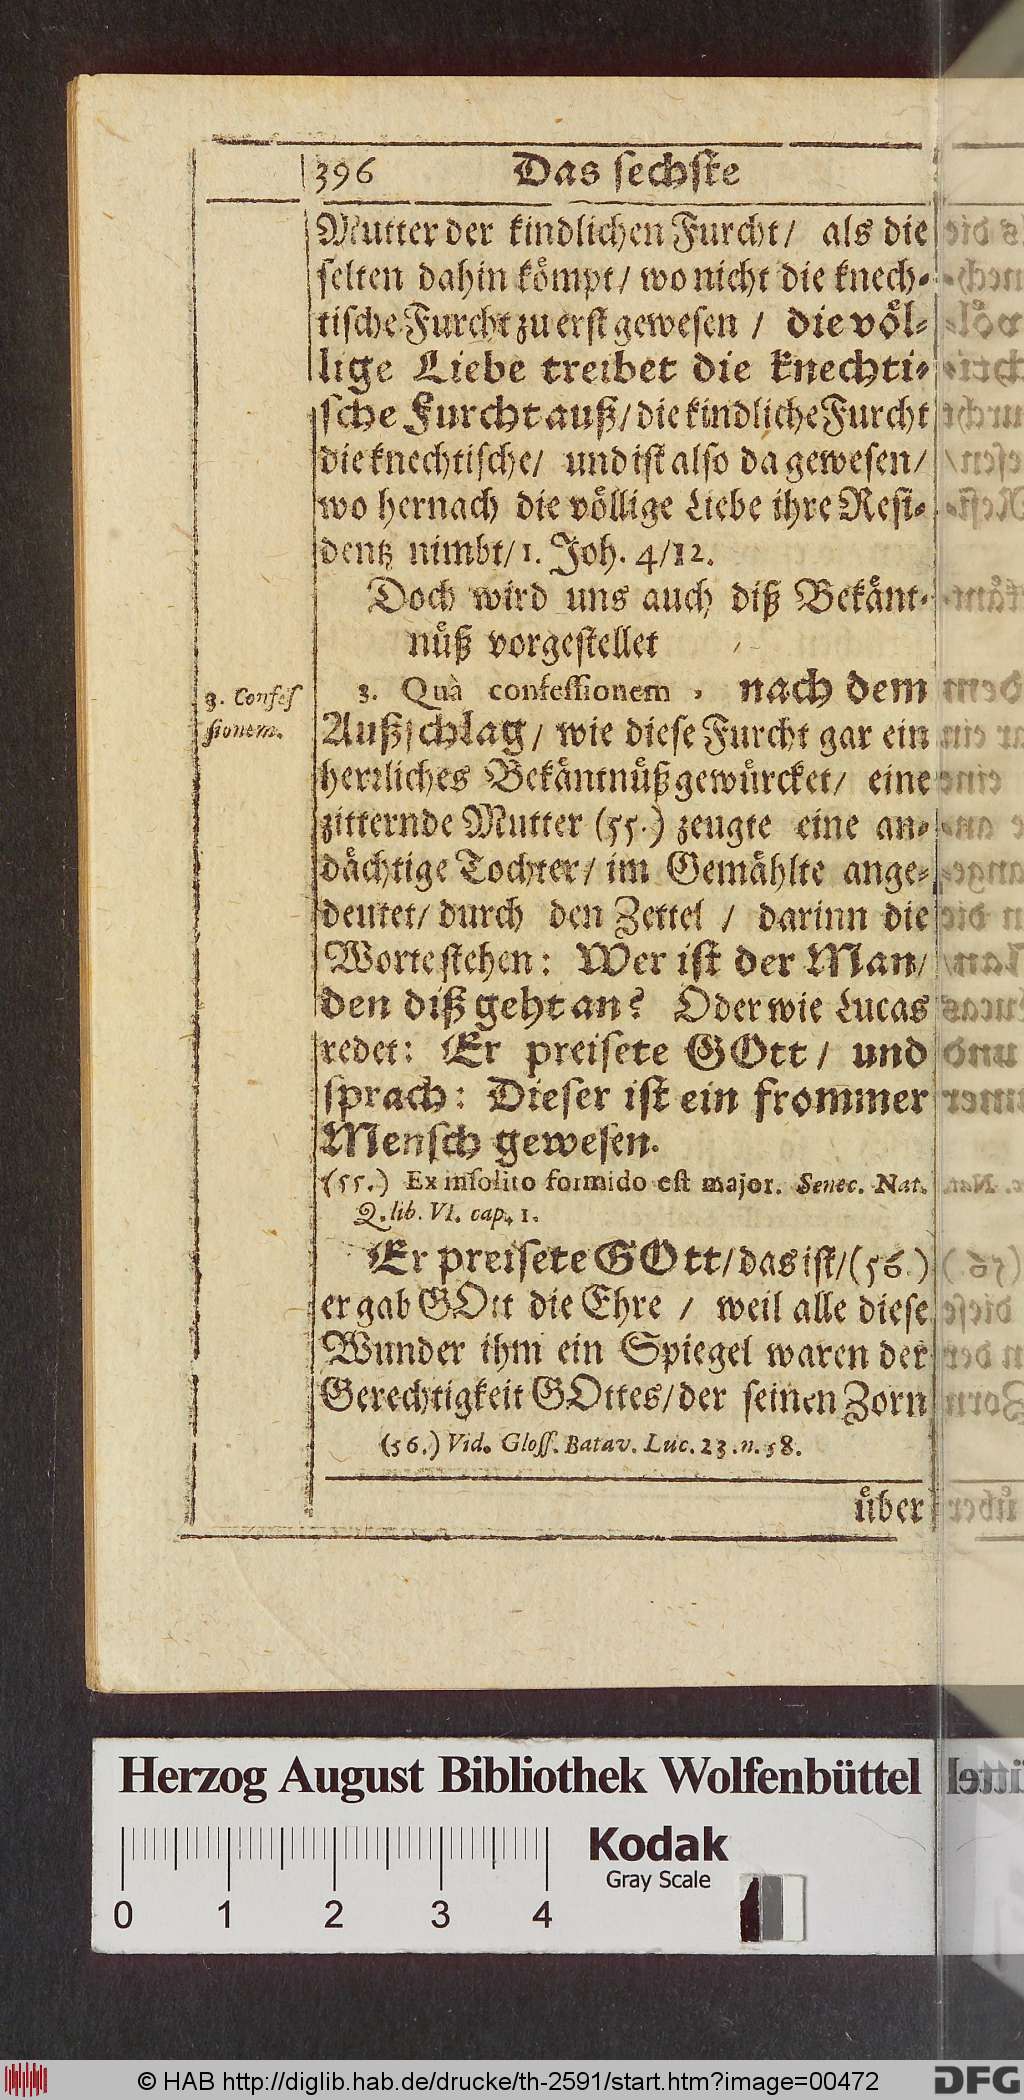 396 Das sechste
Mutter der kindlichen Furcht/ als die
selten dahin kömpt/ wo nicht die knech-
tische Furcht zu erst gewesen / die völ-
lige Liebe treibet die knechti-
sche Furcht auß/ die kindliche Furcht
die knechtische/ und ist also da gewesen/
wo hernach die völlige Liebe ihre Resi-
dentz nimbt/ 1. Joh. 4/12.
Doch wird uns auch diß Bekänt-
nüß vorgestellet
3. Confes
sionem.
3. Quà confessionem , nach dem
Außschlag/ wie diese Furcht gar ein
herrliches Bekäntnüß gewürcket/ eine
zitternde Mutter (55.) zeugte eine an-
dächtige Tochter/ im Gemählte ange-
deutet/ durch den Zettel / darinn die
Worte stehen: Wer ist der Man/
den diß geht an? Oder wie Lucas
redet: Er preisete GOtt / und
sprach: Dieser ist ein frommer
Mensch gewesen.
(55.) Ex insolito formido est major. Senec. Nat.
Q. lib. VI. cap. 1.
Er preisete GOtt/ das ist/ (56.)
er gab GOtt die Ehre / weil alle diese
Wunder ihm ein Spiegel waren der
Gerechtigkeit GOttes/ der seinen Zorn
(56.) Vid. Gloss. Batav. Luc. 23. n. 58.
über
Herzog August Bibliothek Wolfenbüttel
Kodak
Gray Scale
0 1 2 3 4
© HAB http://diglib.hab.de/drucke/th-2591/start.htm?image=00472
DFG